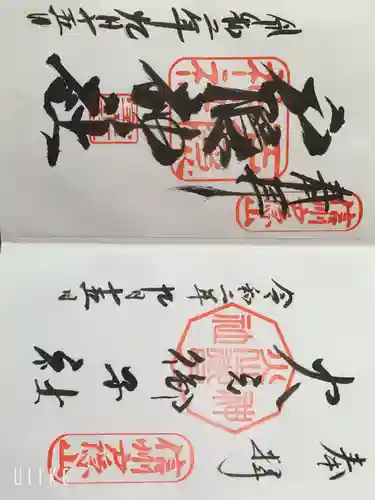 奉拝
戸隠神社
令和二年九月十五日
信州戸隠山
奉拝
火之御子社
令和二年九月十五日
信州戸隠山
ULIKE